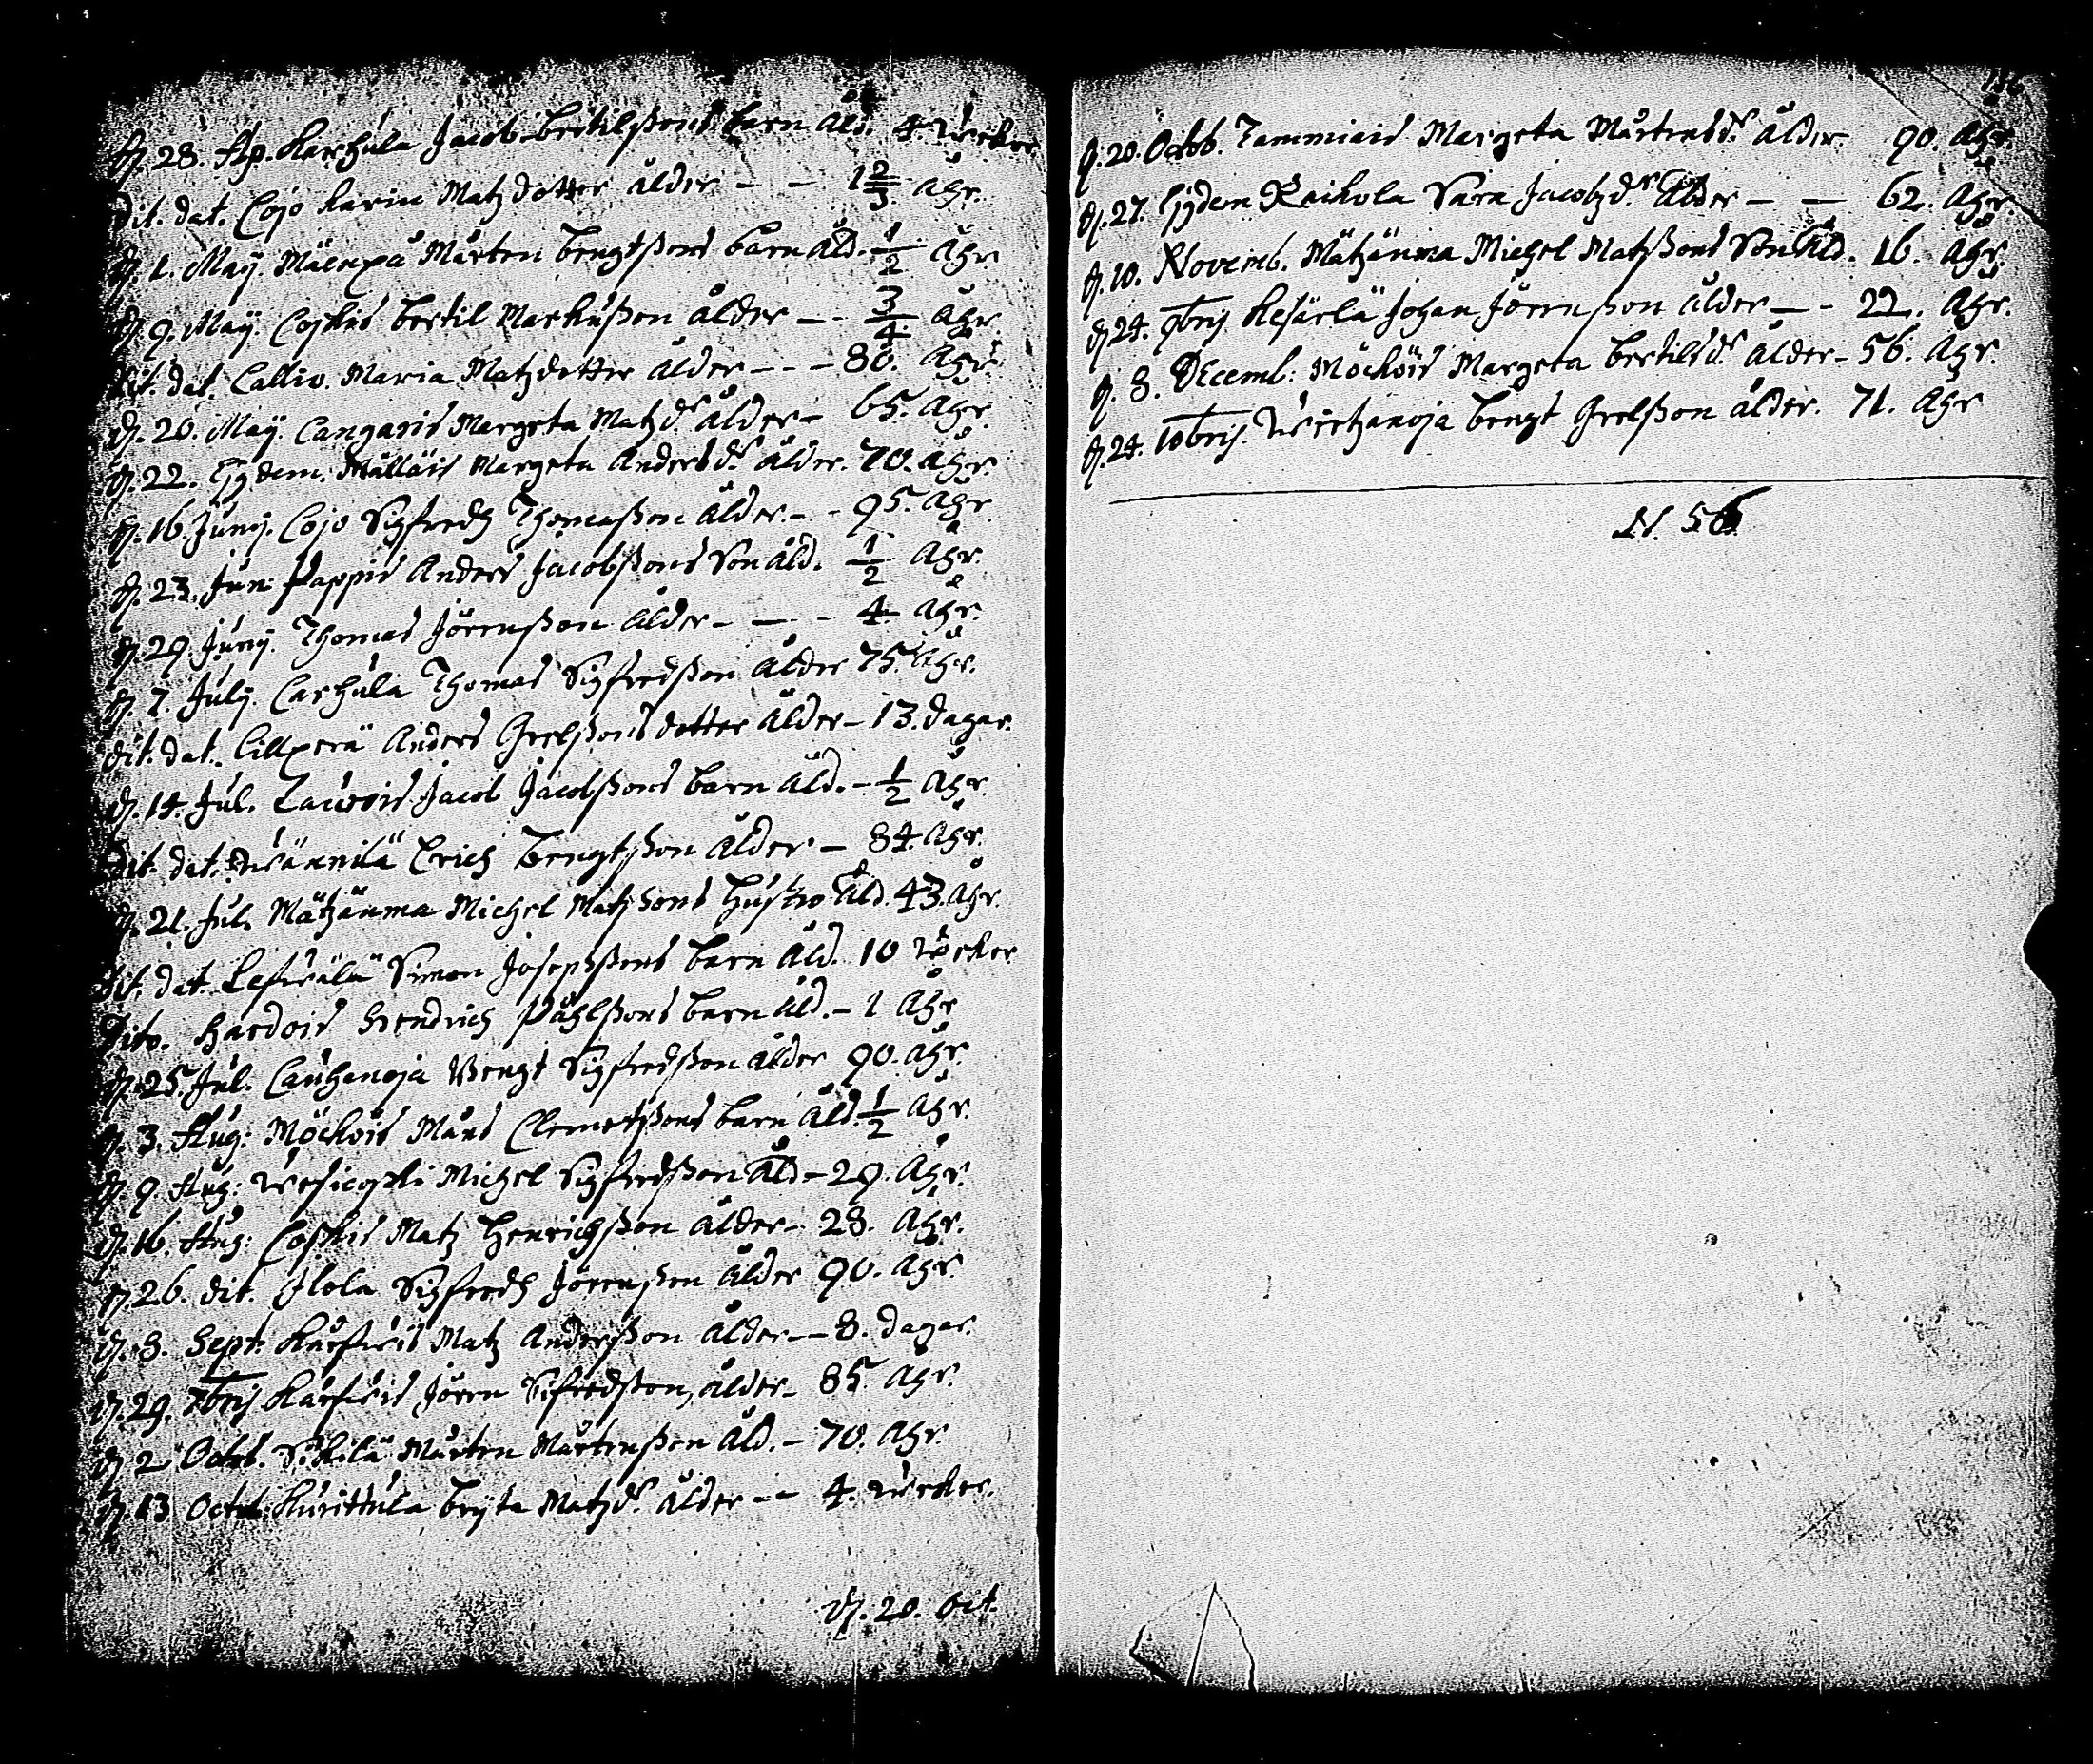 D. 28. Ap. Karhula Jacob Bertilßons barn Åld. 4. wekor
Dit. dat. Cojo Karin Matzdotter ålder - - 1 2/3 åhr.
D. 1. Maÿ. Mäenpä Mårten Bengtßons barn åld. - 1/2 åhr
D. 9. Maÿ. Coskis Bertil Markusson ålder - - 3/4 åhr.
Dit. dat. Callio Maria Matzdotter ålder - - - 80. åhr.
D. 20. Maÿ. Cangaris Margeta Matzdr. ålder - 65. åhr.
D. 22. Ejusdem. Mälläis Margeta Andersdr. ålder. 70. åhr.
D. 16. Junij. Cojo Sigfredh Thomaßon ålder. - - 95. åhr
D. 23. Jun: Pappis Anders Jacobßons Son åld. 1/2 åhr.
D. 29. Junij. Thomas Jörenßon ålder - - - 4. åhr.
D. 7. Julij. Carhula Thomas Sigfredßon ålder 75. åhr.
Dit. dat. Cillperä Anders Grelßons dotter ålder - 13. dagar.
D. 14. Jul. Laurois Jacob Jacobßons barn åld. - 1/2 åhr.
Dit. dat. Wännilä Erich Bengtßon ålder - 84. åhr.
D. 21. Jul. Mätzänma Michel Matzsons hustro åld. 43. åhr.
Dit. dat. Simon Josephßons barn åld. 10 wekor
Dito. Hardois Hendrich Påhlßons barn åld. - 1 åhr
D. 25. Jul. Cauhanoja Bengt Sigfredßon ålder 90. åhr.
D. 3. Aug: Möckois Måns Clemetßons barn åld. 1/2 åhr.
D. 9. Aug: Wesicoski Michel Sigfredßon åld - 29. åhr.
D. 16. Aug: Coskis Matz Henrichßon ålder - 28. åhr.
D. 26. dit. Ilola Sigfredh Jörenßon ålder 90. åhr.
D. 8. Sept: Matz Anderßon ålder - - 8. dagar.
D. 29. 7bris Jören Sifredßon, ålder - 85. åhr.
D. 2 Octob. Sikilä Mårten Mårtenßon åld. - 70. åhr.
D. 13 Octob: Kurittula Brÿta Matzdr. ålder - - 4. wekor.
D. 20. Oct.
186
D. 20. Octob. Tammiais Margeta Mårtensdr. ålder. 90. åhr.
D. 27. Ejusdem Raihola Sara Jacobzdr. ålder - - 62. åhr.
D. 10. Novemb. Mätzänma Michel Matzßons Son åld. 16. åhr.
D. 24. 9bris Kesärlä Johan Jörenßon ålder - - 22. åhr.
D. 8. Decemb: Möckois Margeta Bertilsdr. ålder - 56. åhr.
D. 24. 10bris. Wirtzanoja Bengt Grelßon ålder. 71. åhr
N. 56.